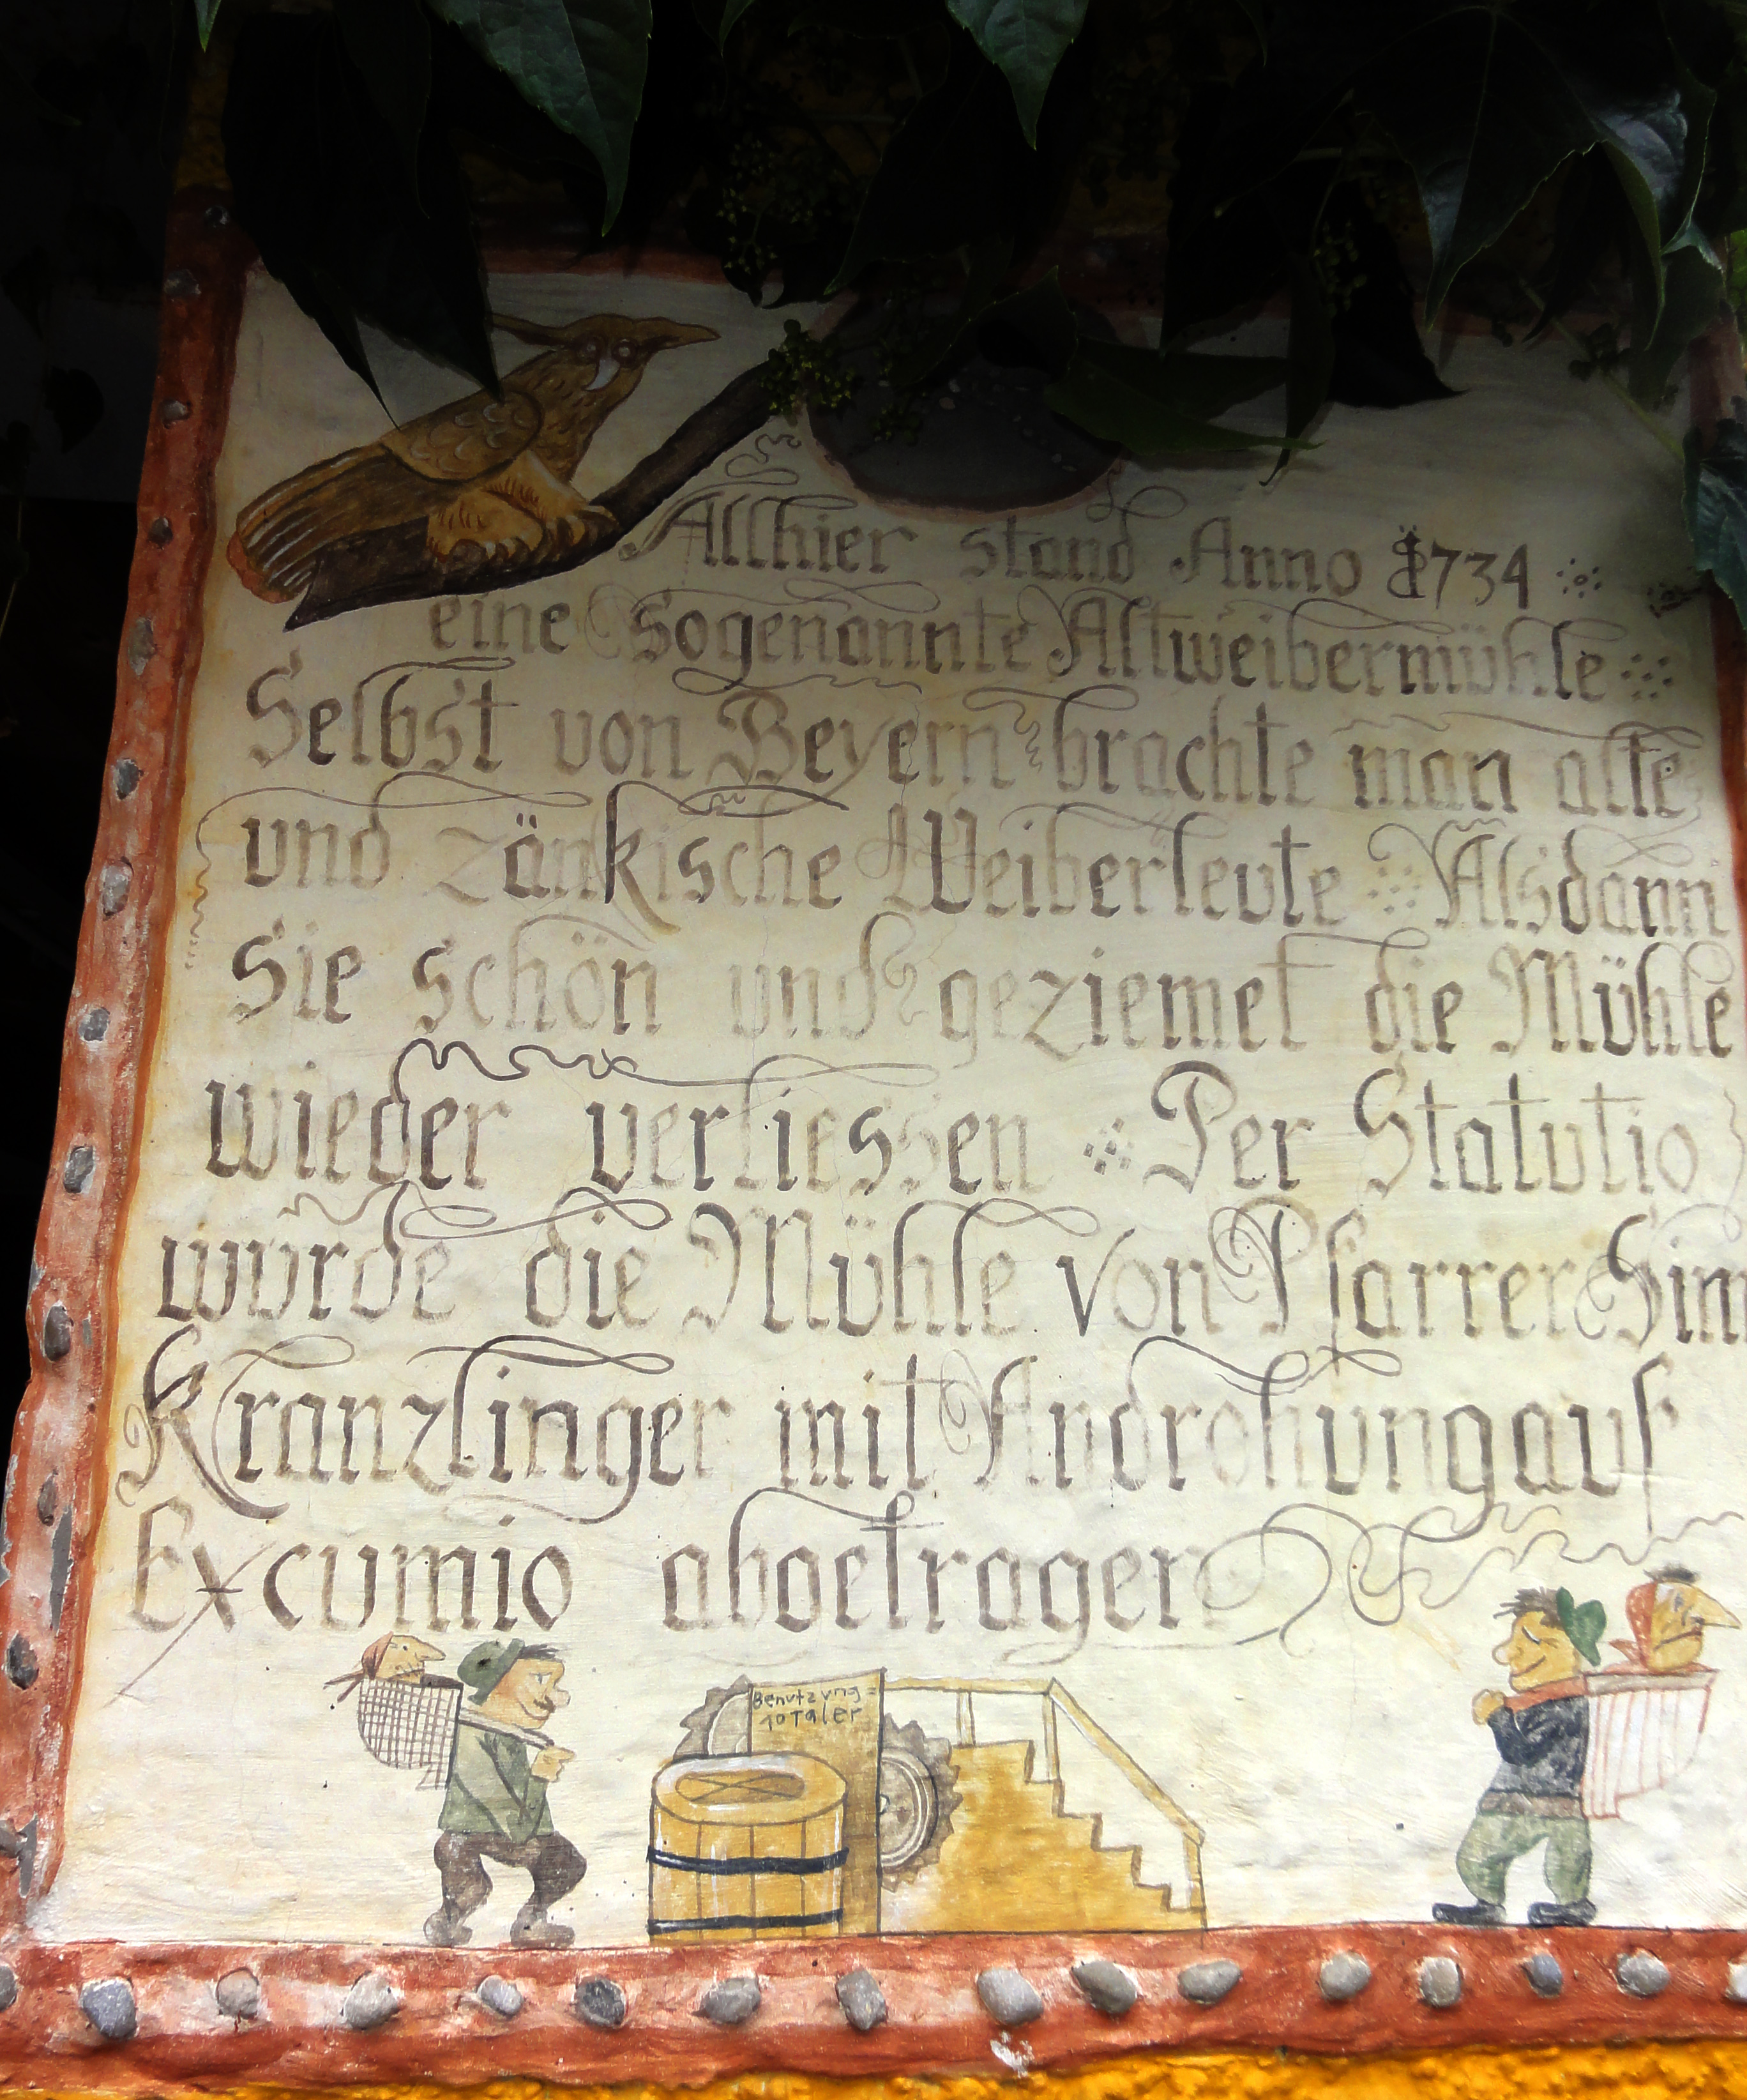 Allhier stand Anno 1734
eine sogenannte Altweibermühle
Selbst von Beyern brachte man alte
und zänkische Weiberleute Alsdann
Sie schön und geziemet die Mühle
wieder verliessen Per Statutio
wurde die Mühle von Pfarrer Sim
Kranzlinger mit Androhung auf
Excumio abgetragen
Benutzung =
10 Taler